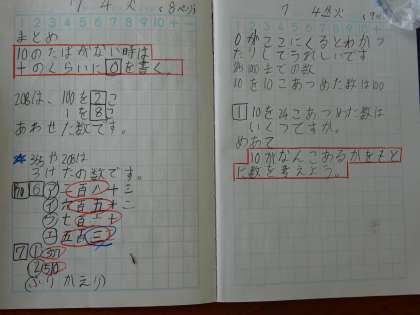 7 4 火 58ページ
まとめ
10のたばがない時は
十のくらいに0を書く。
208は、100を2こ
1を8こ
あわせた数です。
3けたの数です。
6 ア 一百八十三
イ 六百五十二
ウ 七百二十
エ 五百三
7 ① 307
② 510
(ふりかえり)
7 4 火
0がでてここにくるとわかっ
たりしてうれしいです
100までの数
10を10こあつめた数は100
1 10を24こあつめた数は
いくつですか。
めあて
10がなんこあるかをもと
に数を考えよう。